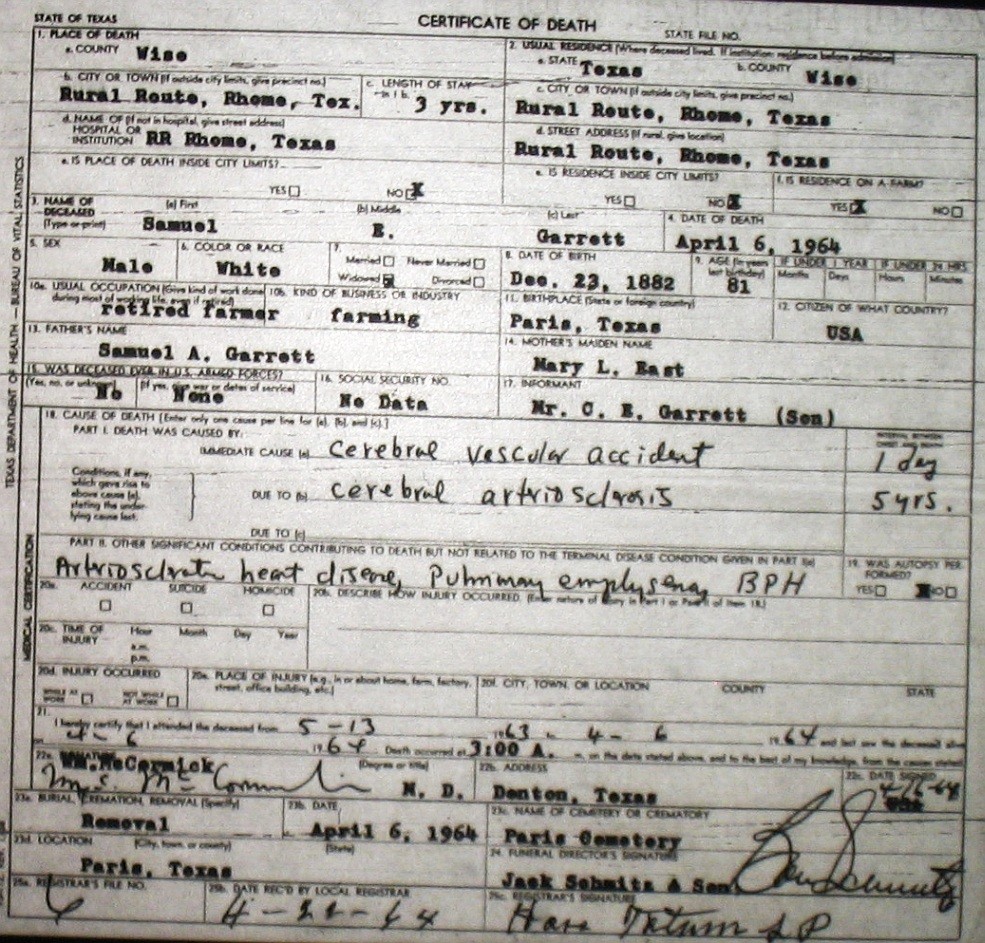 STATE OF TEXAS
CERTIFICATE OF DEATH
STATE FILE NO.
TEXAS DEPARTMENT OF HEALTH — BUREAU OF VITAL STATISTICS
1. PLACE OF DEATH
a. COUNTY Wise
2. USUAL RESIDENCE (Where deceased lived. If institution: residence before admission)
a. STATE Texas b. COUNTY Wise
b. CITY OR TOWN (If outside city limits, give precinct no.)
Rural Route, Rhome, Tex.
c. LENGTH OF STAY in 1b.
3 yrs.
c. CITY OR TOWN (If outside city limits, give precinct no.)
Rural Route, Rhome, Texas
d. NAME OF (If not in hospital, give street address)
HOSPITAL OR
INSTITUTION RR Rhome, Texas
d. STREET ADDRESS (If rural, give location)
Rural Route, Rhome, Texas
e. IS PLACE OF DEATH INSIDE CITY LIMITS?
YES NO X
e. IS RESIDENCE INSIDE CITY LIMITS?
YES NO X
f. IS RESIDENCE ON A FARM?
YES X NO
3. NAME OF DECEASED
(Type or print)
(a) First (b) Middle (c) Last
Samuel E. Garrett
4. DATE OF DEATH
April 6, 1964
5. SEX
Male
6. COLOR OR RACE
White
7.
Married Never Married
Widowed Divorced
8. DATE OF BIRTH
Dec. 23, 1882
9. AGE (In years last birthday)
81
IF UNDER 1 YEAR
Months Days
IF UNDER 24 HRS
Hours Minutes
10a. USUAL OCCUPATION (Give kind of work done
during most of working life, even if retired)
retired farmer
10b. KIND OF BUSINESS OR INDUSTRY
farming
11. BIRTHPLACE (State or foreign country)
Paris, Texas
12. CITIZEN OF WHAT COUNTRY?
USA
13. FATHER'S NAME
Samuel A. Garrett
14. MOTHER'S MAIDEN NAME
Mary L. East
15. WAS DECEASED EVER IN U.S. ARMED FORCES?
(Yes, no, or unknown) (If yes, give war or dates of service)
No None
16. SOCIAL SECURITY NO.
No Data
17. INFORMANT
Mr. C. E. Garrett (Son)
MEDICAL CERTIFICATION
18. CAUSE OF DEATH [Enter only one cause per line for (a), (b), and (c).]
PART I. DEATH WAS CAUSED BY:
INTERVAL BETWEEN ONSET AND DEATH
IMMEDIATE CAUSE (a) Cerebral vascular accident 1 day
Conditions, if any,
which gave rise to
above cause (a),
stating the under-
lying cause last.
DUE TO (b) cerebral artriosclrosis 5 yrs.
DUE TO (c)
PART II. OTHER SIGNIFICANT CONDITIONS CONTRIBUTING TO DEATH BUT NOT RELATED TO THE TERMINAL DISEASE CONDITION GIVEN IN PART I(a)
heart disease, emphysema, BPH
19. WAS AUTOPSY PERFORMED?
YES NO
20a. ACCIDENT SUICIDE HOMICIDE
20b. DESCRIBE HOW INJURY OCCURRED. (Enter nature of injury in Part I or Part II of item 18.)
20c. TIME OF INJURY
Hour Month Day Year
a.m.
p.m.
20d. INJURY OCCURRED
WHILE AT WORK NOT WHILE AT WORK
20e. PLACE OF INJURY (e.g., in or about home, farm, factory,
street, office building, etc.)
20f. CITY, TOWN, OR LOCATION COUNTY STATE
21.
I hereby certify that I attended the deceased from 5-13 1963 4-6 1964 and last saw the deceased alive
4-6 1964 Death occurred at 3:00 A. m. on the date stated above, and to the best of my knowledge, from the causes stated
22a. SIGNATURE
Wm. McCormick
(Degree or title)
M. D.
22b. ADDRESS
Denton, Texas
22c. DATE SIGNED
23a. BURIAL, CREMATION, REMOVAL (Specify)
Removal
23b. DATE
April 6, 1964
23c. NAME OF CEMETERY OR CREMATORY
Paris Cemetery
23d. LOCATION (City, town, or county) (State)
Paris, Texas
24. FUNERAL DIRECTOR'S SIGNATURE
Jack Schmitz & Son
25a. REGISTRAR'S FILE NO.
6
25b. DATE REC'D BY LOCAL REGISTRAR
25c. REGISTRAR'S SIGNATURE
Tatum